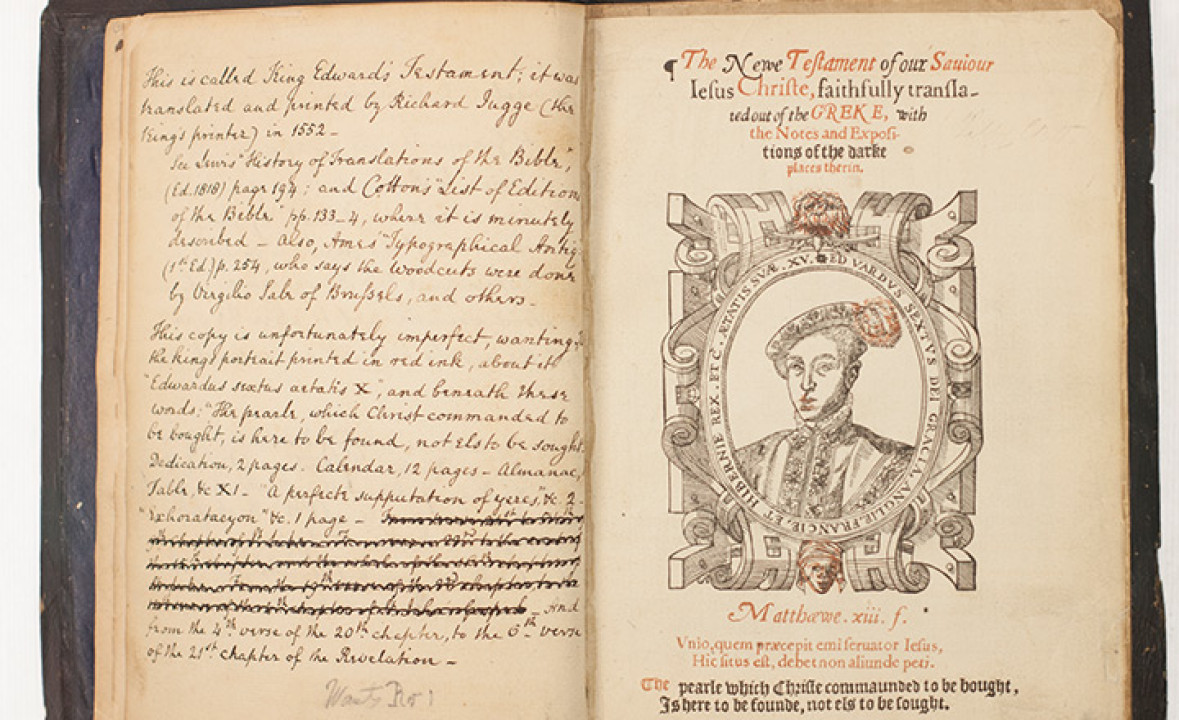 This is called King Edward's Testament; it was
translated and printed by Richard Jugge (the
King's printer) in 1552 –
See Lewis' "History of Translations of the Bible",
(Ed. 1818) page 194: and Cotton's "List of Editions
of the Bible" pp. 133–4, where it is minutely
described – Also, Ames' "Typographical Antiq
(1st Ed.) p. 254, who says the woodcuts were done
by Virgilio Sale of Brussels, and others –
This copy is unfortunately imperfect, wanting
the king's portrait printed in red ink, about it
"Edwardus sextus aetatis X", and beneath these
words: "The pearle, which Christ commanded to
be bought, is here to be found, not els to be sought
Dedication, 2 pages. Calendar, 12 pages – Almanac,
Table, &c XI – "A perfecte supputation of yeres," &c. 2 –
"Exhoratacyon" &c. 1 page –
– And
from the 4th verse of the 20th chapter, to the 6th verse
of the 21st chapter of the Revelation –
¶ The Newe Testament of our Sauiour
Iesus Christe, faithfully transla-
ted out of the GREKE, with
the Notes and Exposi-
tions of the darke
places therin.
ÆTATIS SVÆ . XV. EDVARDVS SEXTVS DEI GRACIA, ANGLIE, FRANCIE, ET HIBERNIE REX . ET C .
Matthæwe. xiii. f.
Vnio, quem præcepit emi seruator Iesus,
Hic situs est, debet non aliunde peti.
The pearle which Christe commaunded to be bought,
Is here to be founde, not els to be sought.